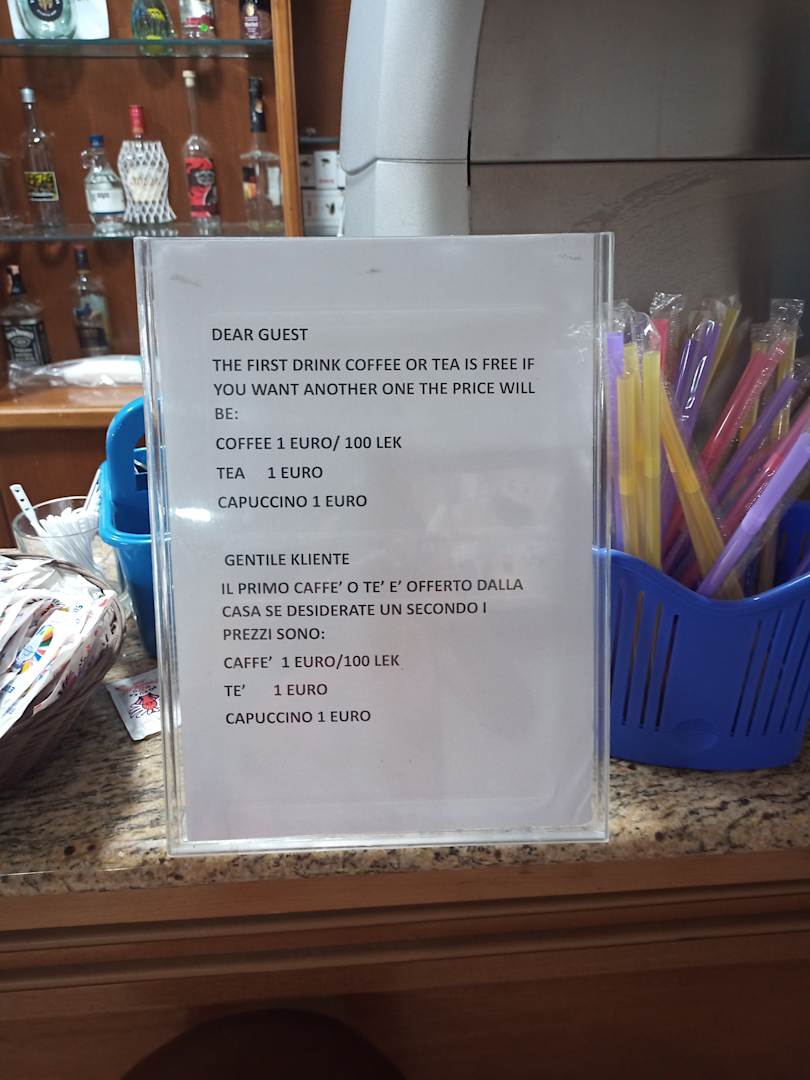 DEAR GUEST
THE FIRST DRINK COFFEE OR TEA IS FREE IF
YOU WANT ANOTHER ONE THE PRICE WILL
BE:
COFFEE 1 EURO/ 100 LEK
TEA 1 EURO
CAPUCCINO 1 EURO
GENTILE KLIENTE
IL PRIMO CAFFE' O TE' E' OFFERTO DALLA
CASA SE DESIDERATE UN SECONDO I
PREZZI SONO:
CAFFE' 1 EURO/100 LEK
TE' 1 EURO
CAPUCCINO 1 EURO